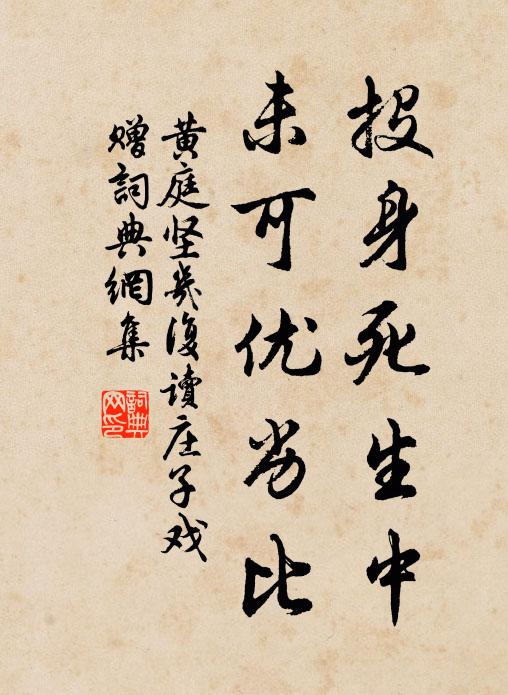 投身死生中
未可优劣比
黄庭坚几复读庄子戏
赠词典網集
詞典
网印